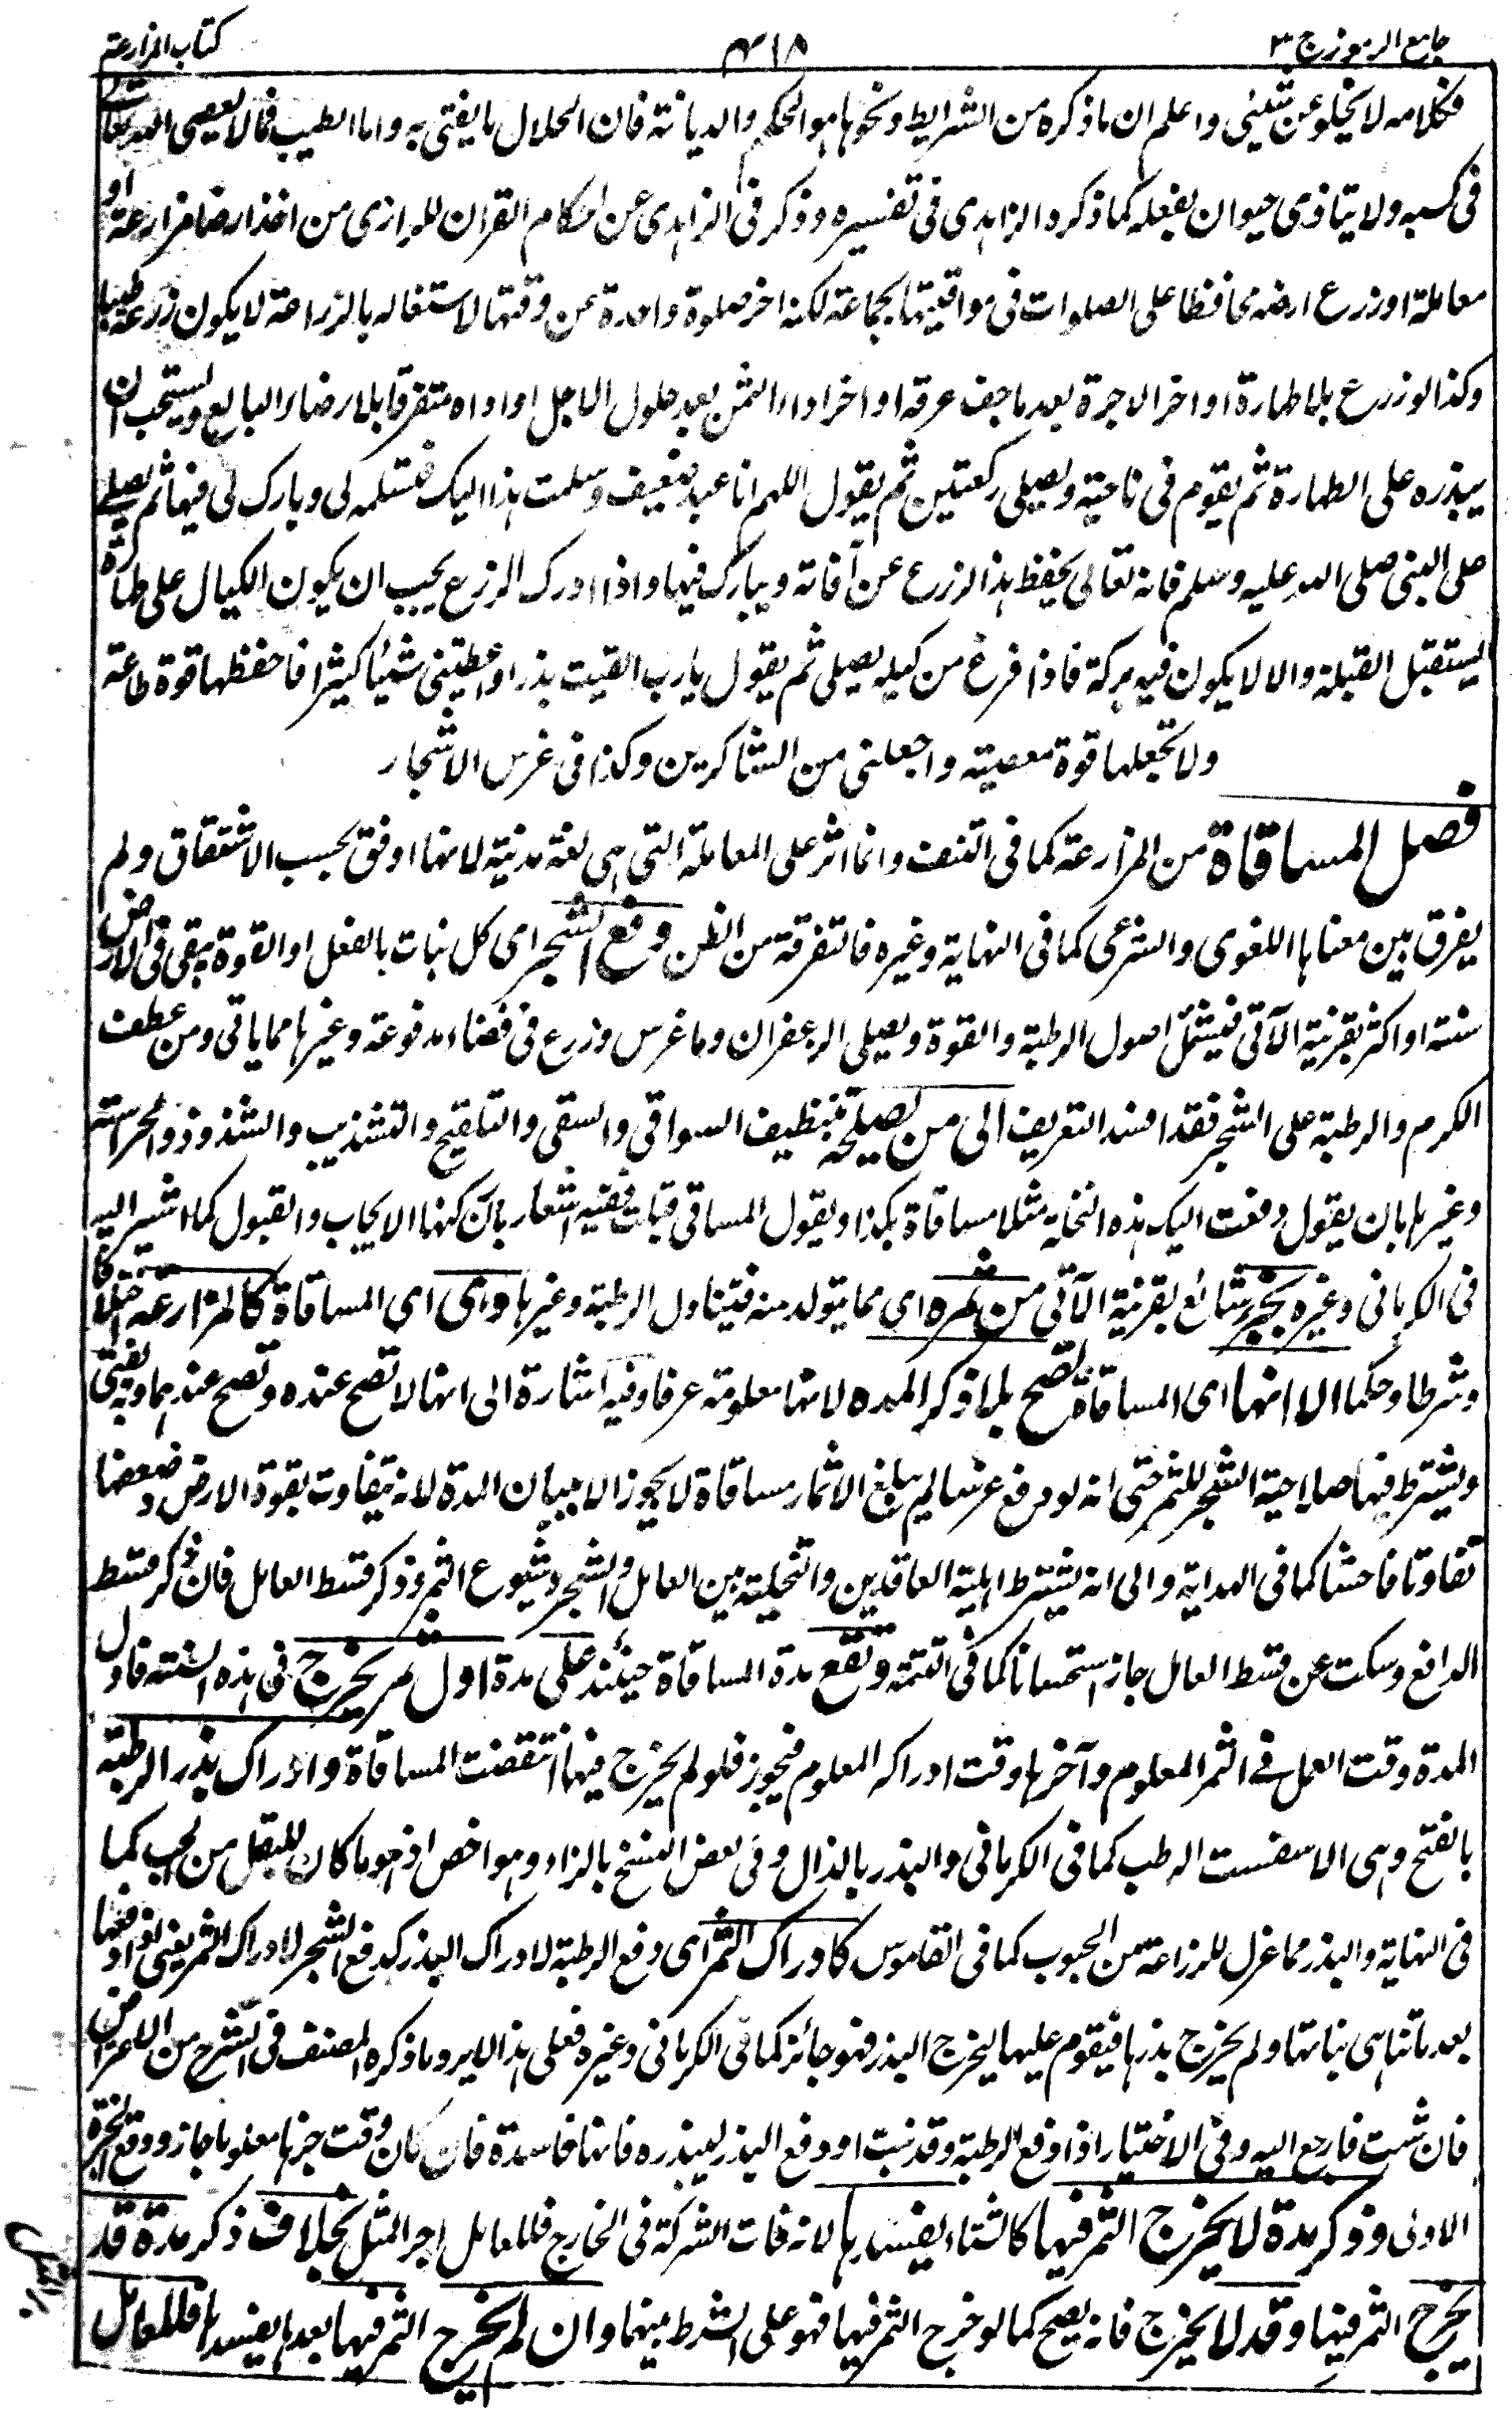 جامع الرموز ج ٣ ٤١٨ كتاب المزارعة
فكلامه لا يخلو عن شيئ واعلم ان ما ذكره من الشرايط ونحوها هو الحكم والديانة فان الحلال ما يفتى به واما الطيب فما لا يعصى الله تعالى
فى كسبه ولا يتاذى حيوان بفعله كما ذكره الزاهدى فى تفسيره وذكر فى الزاهدى عن احكام القران للرازى من اخذ ارضا مزارعة او
معاملة او زرع ارضه محافظا على الصلوات فى مواقيتها بجماعة لكنه اخر صلوة واحدة عن وقتها لاشتغاله بالزراعة لا يكون زرعه طيبا
وكذا لو زرع بلا طهارة او اخر الاجرة بعد ما جف عرقه او اخر اداء الثمن بعد حلول الاجل او اداه متفرقا بلا رضاء البايع ويستحب ان
يبذره على الطهارة ثم يقوم فى ناحية ويصلى ركعتين ثم يقول اللهم انا عبد ضعيف وسلمت هذا اليك فتسلمه لى وبارك لى فيها ثم يصلى
على النبى صلى الله عليه وسلم فانه تعالى يحفظ هذا الزرع عن آفاته ويبارك فيها واذا ادرك الزرع يجب ان يكون الكيال على طهارة
يستقبل القبلة والا لا يكون فيه بركة فاذا فرغ من كيله يصلى ثم يقول يا رب القيت بذرا واعطيتنى شيئا كثيرا فاحفظها قوة طاعة
ولا تجعلها قوة معصية واجعلنى من الشاكرين وكذا فى غرس الاشجار
فصل المساقاة من المزارعة كما فى النتف وانما اثر على المعاملة التى هى لغة مدنية لانها اوفق بحسب الاشتقاق ولم
يفرق بين معناها اللغوى والشرعى كما فى النهاية وغيره فالتفرقة من الظن دفع الشجر اى كل نبات بالفعل او القوة يبقى فى الارض
سنة او اكثر بقرينة الآتى فيشمل اصول الرطبة والفوة وبصل الزعفران وما غرس وزرع فى فضاء مدفوعة وغيرها مما ياتى ومن عطف
الكرم والرطبة على الشجر فقد افسد التعريف الى من يصلحه بتنظيف السواقى والسقى والتلقيح والتشذيب والشذوذ والحراسة
وغيرها بان يقول دفعت اليك هذه النخلية مثلا مساقاة بكذا ويقول المساقى قبلت ففيه اشعار بان ركنها الايجاب والقبول كما اشير اليه
فى الكرمانى وغيره بجزء شائع بقرينة الآتى من ثمره اى مما يتولد منه فيتناول الرطبة وغيرها وهى اى المساقاة كالمزارعة خلافا
وشرطا وحكما الا انها اى المساقاة تصح بلا ذكر المدة لانها معلومة عرفا وفيه اشارة الى انها لا تصح عنده وتصح عندهما وبه يفتى
ويشترط فيها صلاحية الشجر للثمر حتى انه لو دفع غرسا لم يبلغ الاثمار مساقاة لا يجوز الا ببيان المدة لانه يتفاوت بقوة الارض وضعفها
تفاوتا فاحشا كما فى الهداية والى انه يشترط اهلية العاقدين والتخلية بين العامل والشجر وشيوع الثمر وذكر قسط العامل فان ذكر قسط
الدافع وسكت عن قسط العامل جاز استحسانا كما فى التتمة وتقع مدة المساقاة حينئذ على مدة اول ثمر يخرج فى هذه السنة فاول
المدة وقت العمل فى الثمر المعلوم وآخرها وقت ادراكه المعلوم فيجوز فلو لم يخرج فيها انتقضت المساقاة وادراك بذر الرطبة
بالفتح وهى الاسفست الرطب كما فى الكرمانى والبذر بالذال وفى بعض النسخ بالزاء وهو اخص اذ هو ما كان للبقل من الحب كما
فى النهاية والبذر مما عزل للزراعة من الحبوب كما فى القاموس كادراك الثمر اى دفع الرطبة لادراك البذر كدفع الشجر لادراك الثمر يعنى لو دفعها
بعد ما تناهى نباتها ولم يخرج بذرها فيقوم عليها ليخرج البذر فهو جائز كما فى الكرمانى وغيره فعلى هذا لا يرد ما ذكره المصنف فى الشرح من الاعتراض
فان شئت فارجع اليه وفى الاختيار اذا دفع الرطبة وقد نبت او دفع البذر ليبذره فانها فاسدة فان كان وقت جزها معلوما جاز ووقع الجزة
الاولى وذكر مدة لا يخرج الثمر فيها كالشتاء يفسدها لانه فات الشركة فى الخارج فللعامل اجر المثل بخلاف ذكر مدة قد
يخرج الثمر فيها وقد لا يخرج فانه يصح كما لو خرج الثمر فيها فهو على الشرط بينهما وان لم يخرج الثمر فيها بعدها يفسدها فللعامل